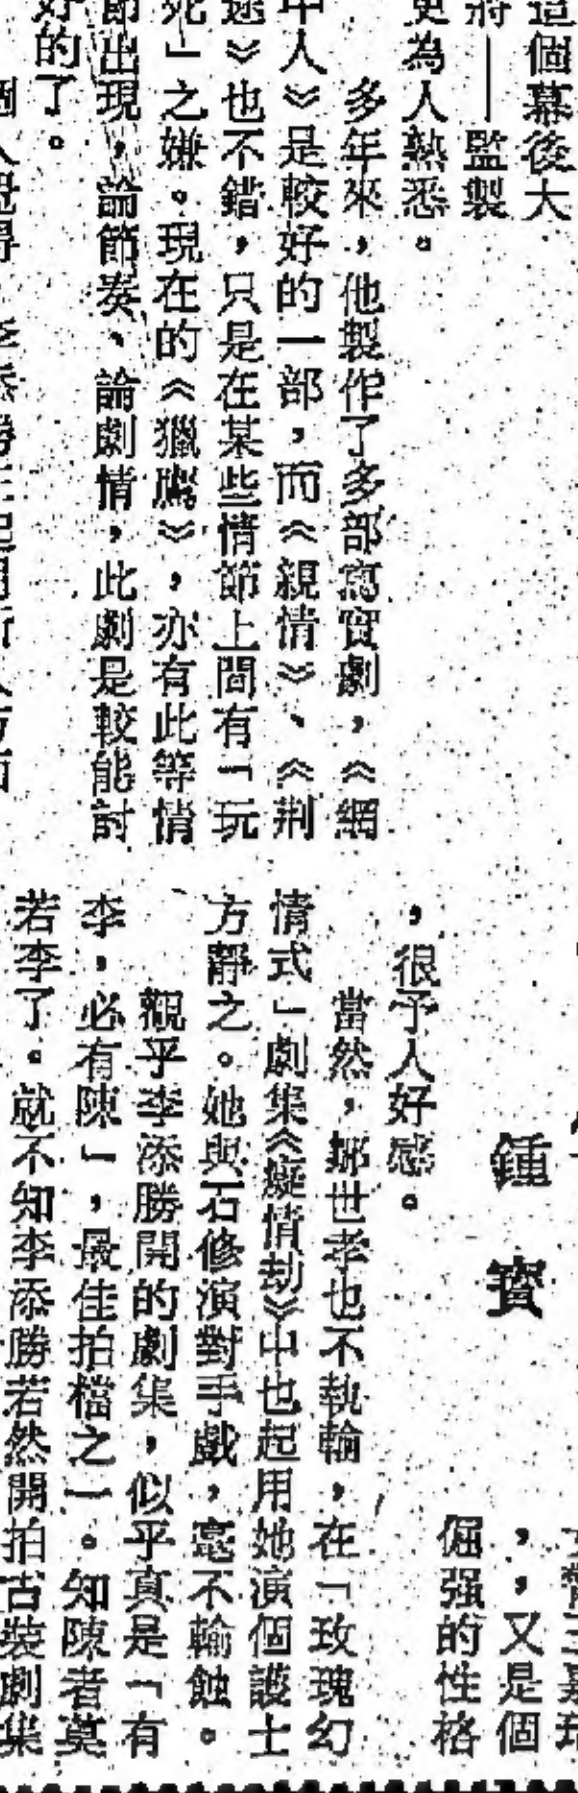 這個幕後大
將——監製
更為人熟悉。
多年來，他製作了多部寫實劇，《網
中人》是較好的一部，而《親情》、《荆
途》也不錯，只是在某些情節上間有「玩
死」之嫌。現在的《獵鷹》，亦有此等情
節出現，論節奏、論劇情，此劇是較能討
好的了。
鍾
寶
，又是個
倔强的性格
，很予人好感。
當然，鄔世孝也不執輸，在「玫瑰幻
情式」劇集《癡情劫》中也起用她演個護士
方靜之。她與石修演對手戲，毫不輸蝕。
觀乎李添勝開的劇集，似乎真是「有
李，必有陳」，最佳拍檔之一。知陳者莫
若李了。就不知李添勝若然開拍古裝劇集